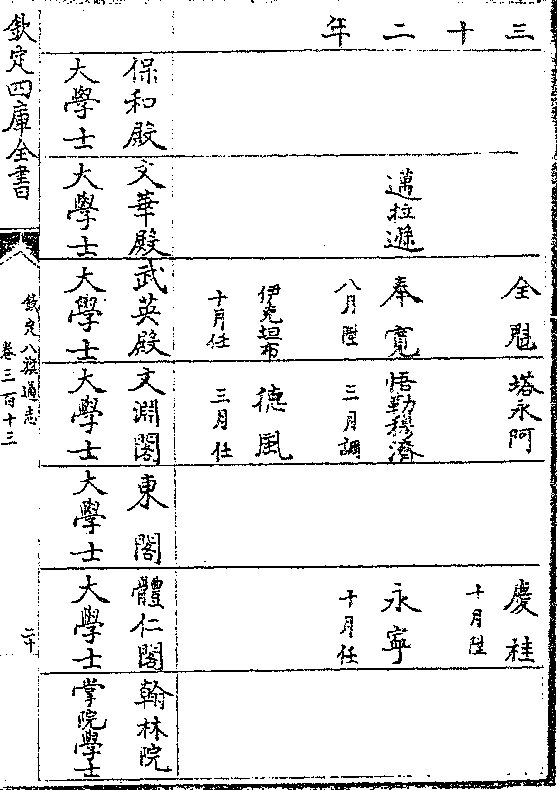 三十二年
全魁
塔永阿
慶桂
十月陞
邁拉遜
奉寬
八月陞
悟勒穆濟
三月調
永寧
十月任
伊克坦布
十月任
德風
三月任
保和殿
大學士
文華殿
大學士
武英殿
大學士
文淵閣
大學士
東閣
大學士
體仁閣
大學士
翰林院
掌院學士
欽定四庫全書
欽定八旗通志
卷三百十三
二十